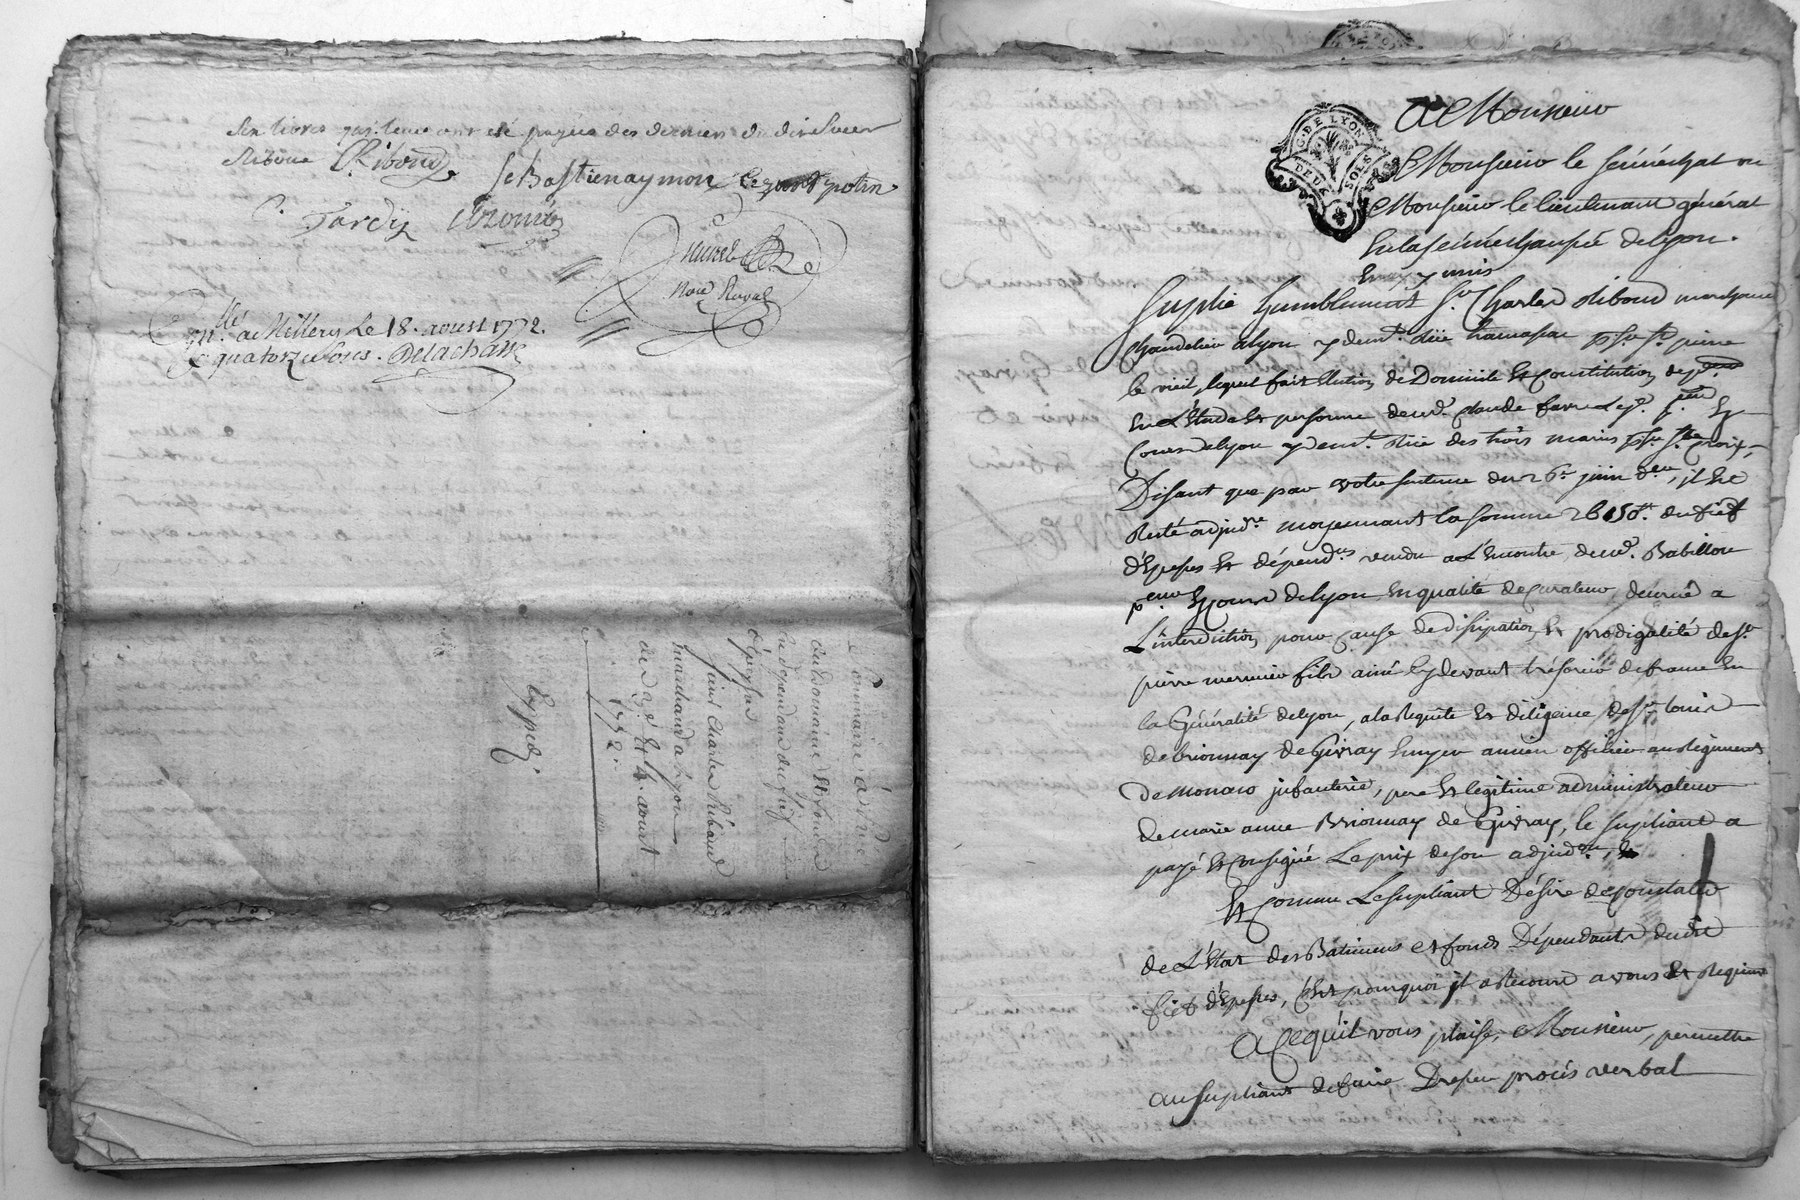 six livres qui leur ont été payées des deniers du dit Sieur
Riboud CRiboud SeBastienaymon
Tardy
Notre Royal
Con.llé a Millery Le 18. aoust 1772.
quatorze sols. Delachass
Sommaire à prise
du domaine et fonds
en dependant du fief
d'Epeysse
Sieur Charles Riboud
marchand a Lyon
du 3e. et 4. aoust
1772.
Exped.
G. DE LYON
DEUX SOLS
A Monsieur
Monsieur le sénéchal ou
Monsieur le lieutenant général
En la sénéchaussée de Lyon.
Suplie humblement Sr. Charles Riboud marchand
Chandelier a Lyon y demt. rüe psse St. pierre
le vieil, lequel fait Election de Domicile et Constitution de
En L'étude et personne de me. Claude favre
Cours de Lyon y demt. rüe des trois maries psse Ste Croix,
Disant que par votre sentence du 26e. juin der, il est
Resté adjudre. moyennant la somme du fief
d'Epesses et dépendces vendu a L'encontre de me. Babillon
pcur Es Cours de Lyon en qualité de Curateur décerné a
L'interdiction pour Cause de dissipation et prodigalité de Sr.
pierre mermier fils ainé Cy devant trésorier de france en
la Généralité de Lyon, a la Requête et diligence de Sr. louis
de brionnay de Givray Ecuyer ancien officier au Régiment
De monaco jnfanterie, pere et legitime administrateur
de marie anne Brionnay de Givray, le supliant a
payé et Consigné Le prix de son adjudon,
Et Comme Le supliant Désire de Constater
de L'état des Batimens et fonds Dépendants dudit
fief d'Epesses, C'est pourquoi jl a Recours a vous et Requiert
A Ce qu'il vous plaise, Monsieur, permettre
au supliant de faire Dresser procès verbal